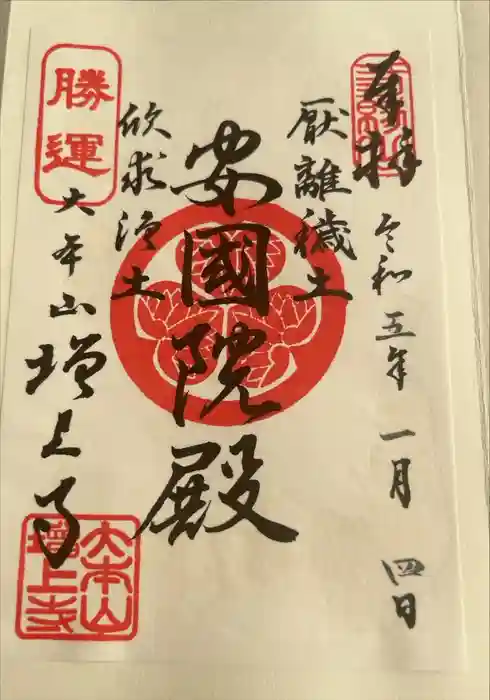 奉拝
令和五年一月四日
厭離穢土
安國院殿
欣求浄土
勝運
大本山増上寺
大本山
增上寺